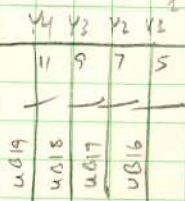 Y4 Y3 Y2 Y1
11 9 7 5
UB19 UB18 UB17 UB16